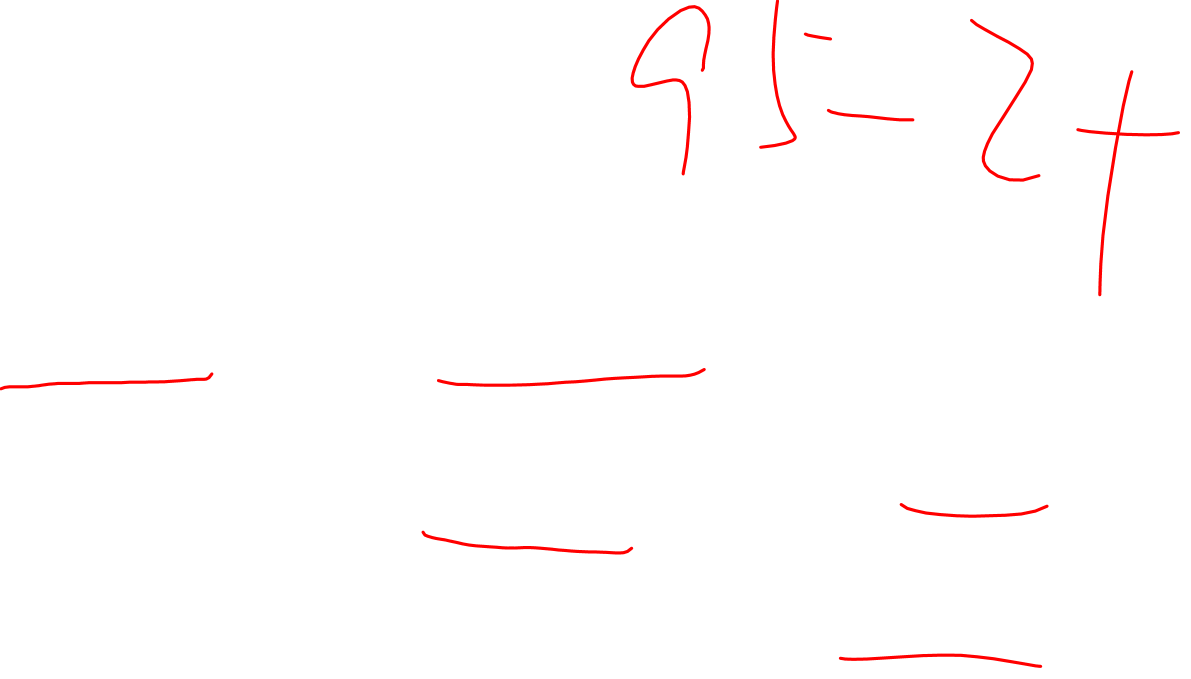 95-2+
- = =